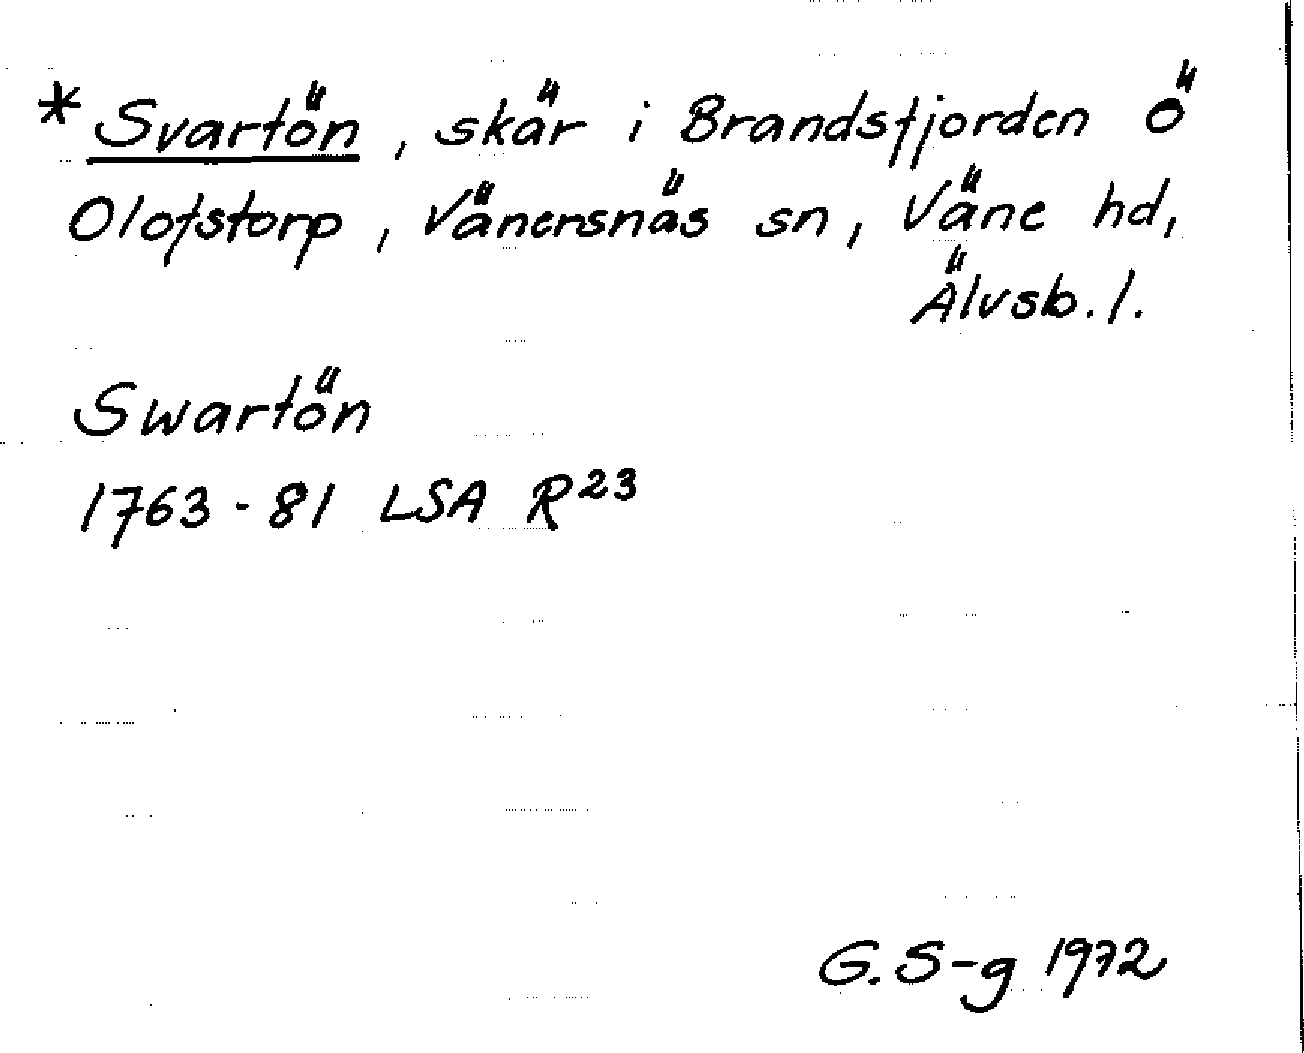 * Svartön, skär i Brandsfjorden Ö
Olofstorp, Vänersnäs sn, Väne hd,
Älvsb. l.
Swartön
1763-81 LSA R²³
G. S-g 1972